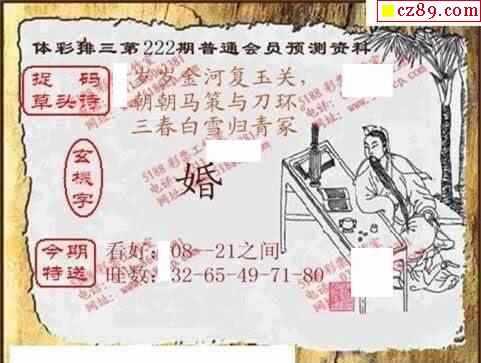 cz89.com
体彩排三第222期普通会员预测资料
捉码
草头诗
岁岁金河复玉关，
朝朝马策与刀环
三春白雪归青冢
玄机字
婚
今期
特送
看好：08--21之间
旺数：32-65-49-71-80